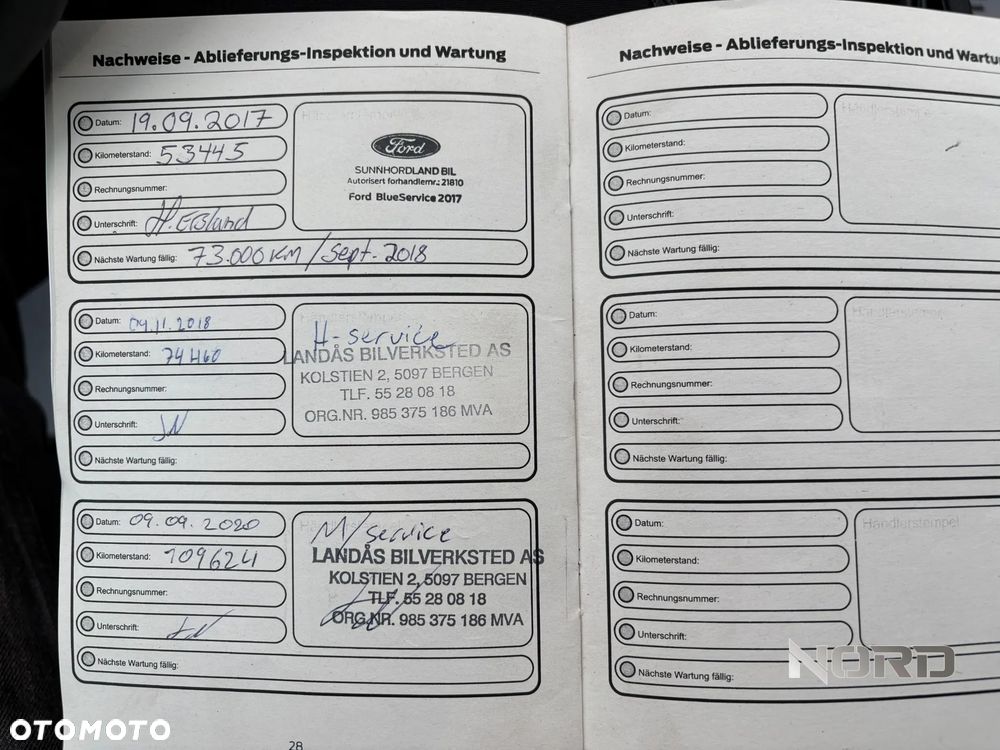 Nachweise - Ablieferungs-Inspektion und Wartung
Datum: 19.09.2017
Kilometerstand: 53445
Rechnungsnummer:
Unterschrift:
Nächste Wartung fällig: 73.000 KM / Sept. 2018
Ford
SUNNHORDLAND BIL
Autorisert forhandlernr.: 21810
Ford BlueService 2017
Datum: 09.11.2018
Kilometerstand: 74460
Rechnungsnummer:
Unterschrift: JN
Nächste Wartung fällig:
H-service
LANDÅS BILVERKSTED AS
KOLSTIEN 2, 5097 BERGEN
TLF. 55 28 08 18
ORG.NR. 985 375 186 MVA
Datum: 09.09.2020
Kilometerstand: 109624
Rechnungsnummer:
Unterschrift:
Nächste Wartung fällig:
M/service
LANDÅS BILVERKSTED AS
KOLSTIEN 2, 5097 BERGEN
TLF. 55 28 08 18
ORG.NR. 985 375 186 MVA
28
Nachweise - Ablieferungs-Inspektion und Wartu
Datum:
Kilometerstand:
Rechnungsnummer:
Unterschrift:
Nächste Wartung fällig:
Datum:
Kilometerstand:
Rechnungsnummer:
Unterschrift:
Nächste Wartung fällig:
Datum:
Kilometerstand:
Rechnungsnummer:
Unterschrift:
Nächste Wartung fällig:
Händlerstempel
NORD
OTOMOTO